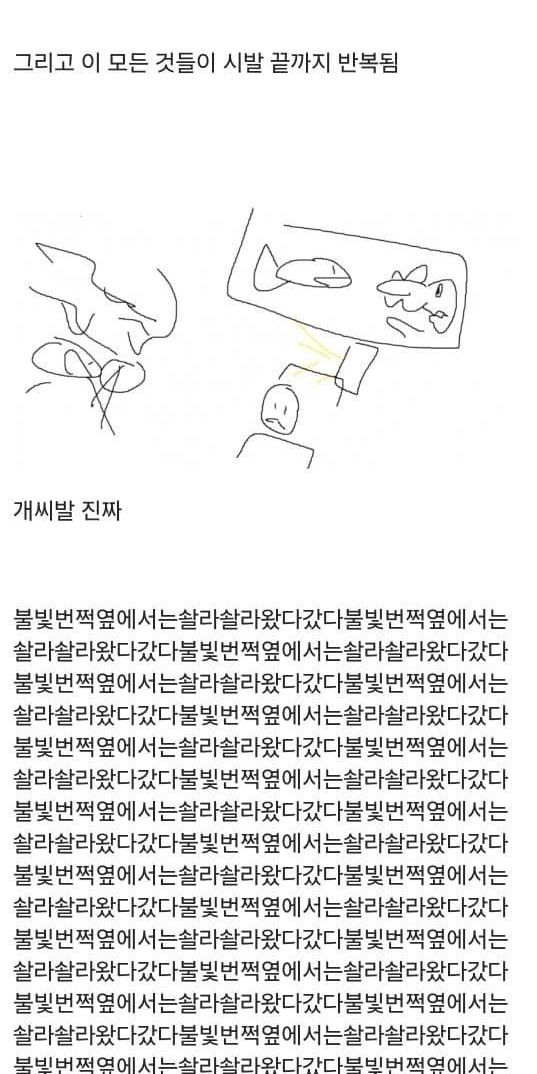 그리고 이 모든 것들이 시발 끝까지 반복됨
개씨발 진짜
불빛번쩍옆에서는솰라솰라왔다갔다불빛번쩍옆에서는
솰라솰라왔다갔다불빛번쩍옆에서는솰라솰라왔다갔다
불빛번쩍옆에서는솰라솰라왔다갔다불빛번쩍옆에서는
솰라솰라왔다갔다불빛번쩍옆에서는솰라솰라왔다갔다
불빛번쩍옆에서는솰라솰라왔다갔다불빛번쩍옆에서는
솰라솰라왔다갔다불빛번쩍옆에서는솰라솰라왔다갔다
불빛번쩍옆에서는솰라솰라왔다갔다불빛번쩍옆에서는
솰라솰라왔다갔다불빛번쩍옆에서는솰라솰라왔다갔다
불빛번쩍옆에서는솰라솰라왔다갔다불빛번쩍옆에서는
솰라솰라왔다갔다불빛번쩍옆에서는솰라솰라왔다갔다
불빛번쩍옆에서는솰라솰라왔다갔다불빛번쩍옆에서는
솰라솰라왔다갔다불빛번쩍옆에서는솰라솰라왔다갔다
불빛번쩍옆에서는솰라솰라왔다갔다불빛번쩍옆에서는
솰라솰라왔다갔다불빛번쩍옆에서는솰라솰라왔다갔다
불빛번쩍옆에서는솰라솰라왔다갔다불빛번쩍옆에서는